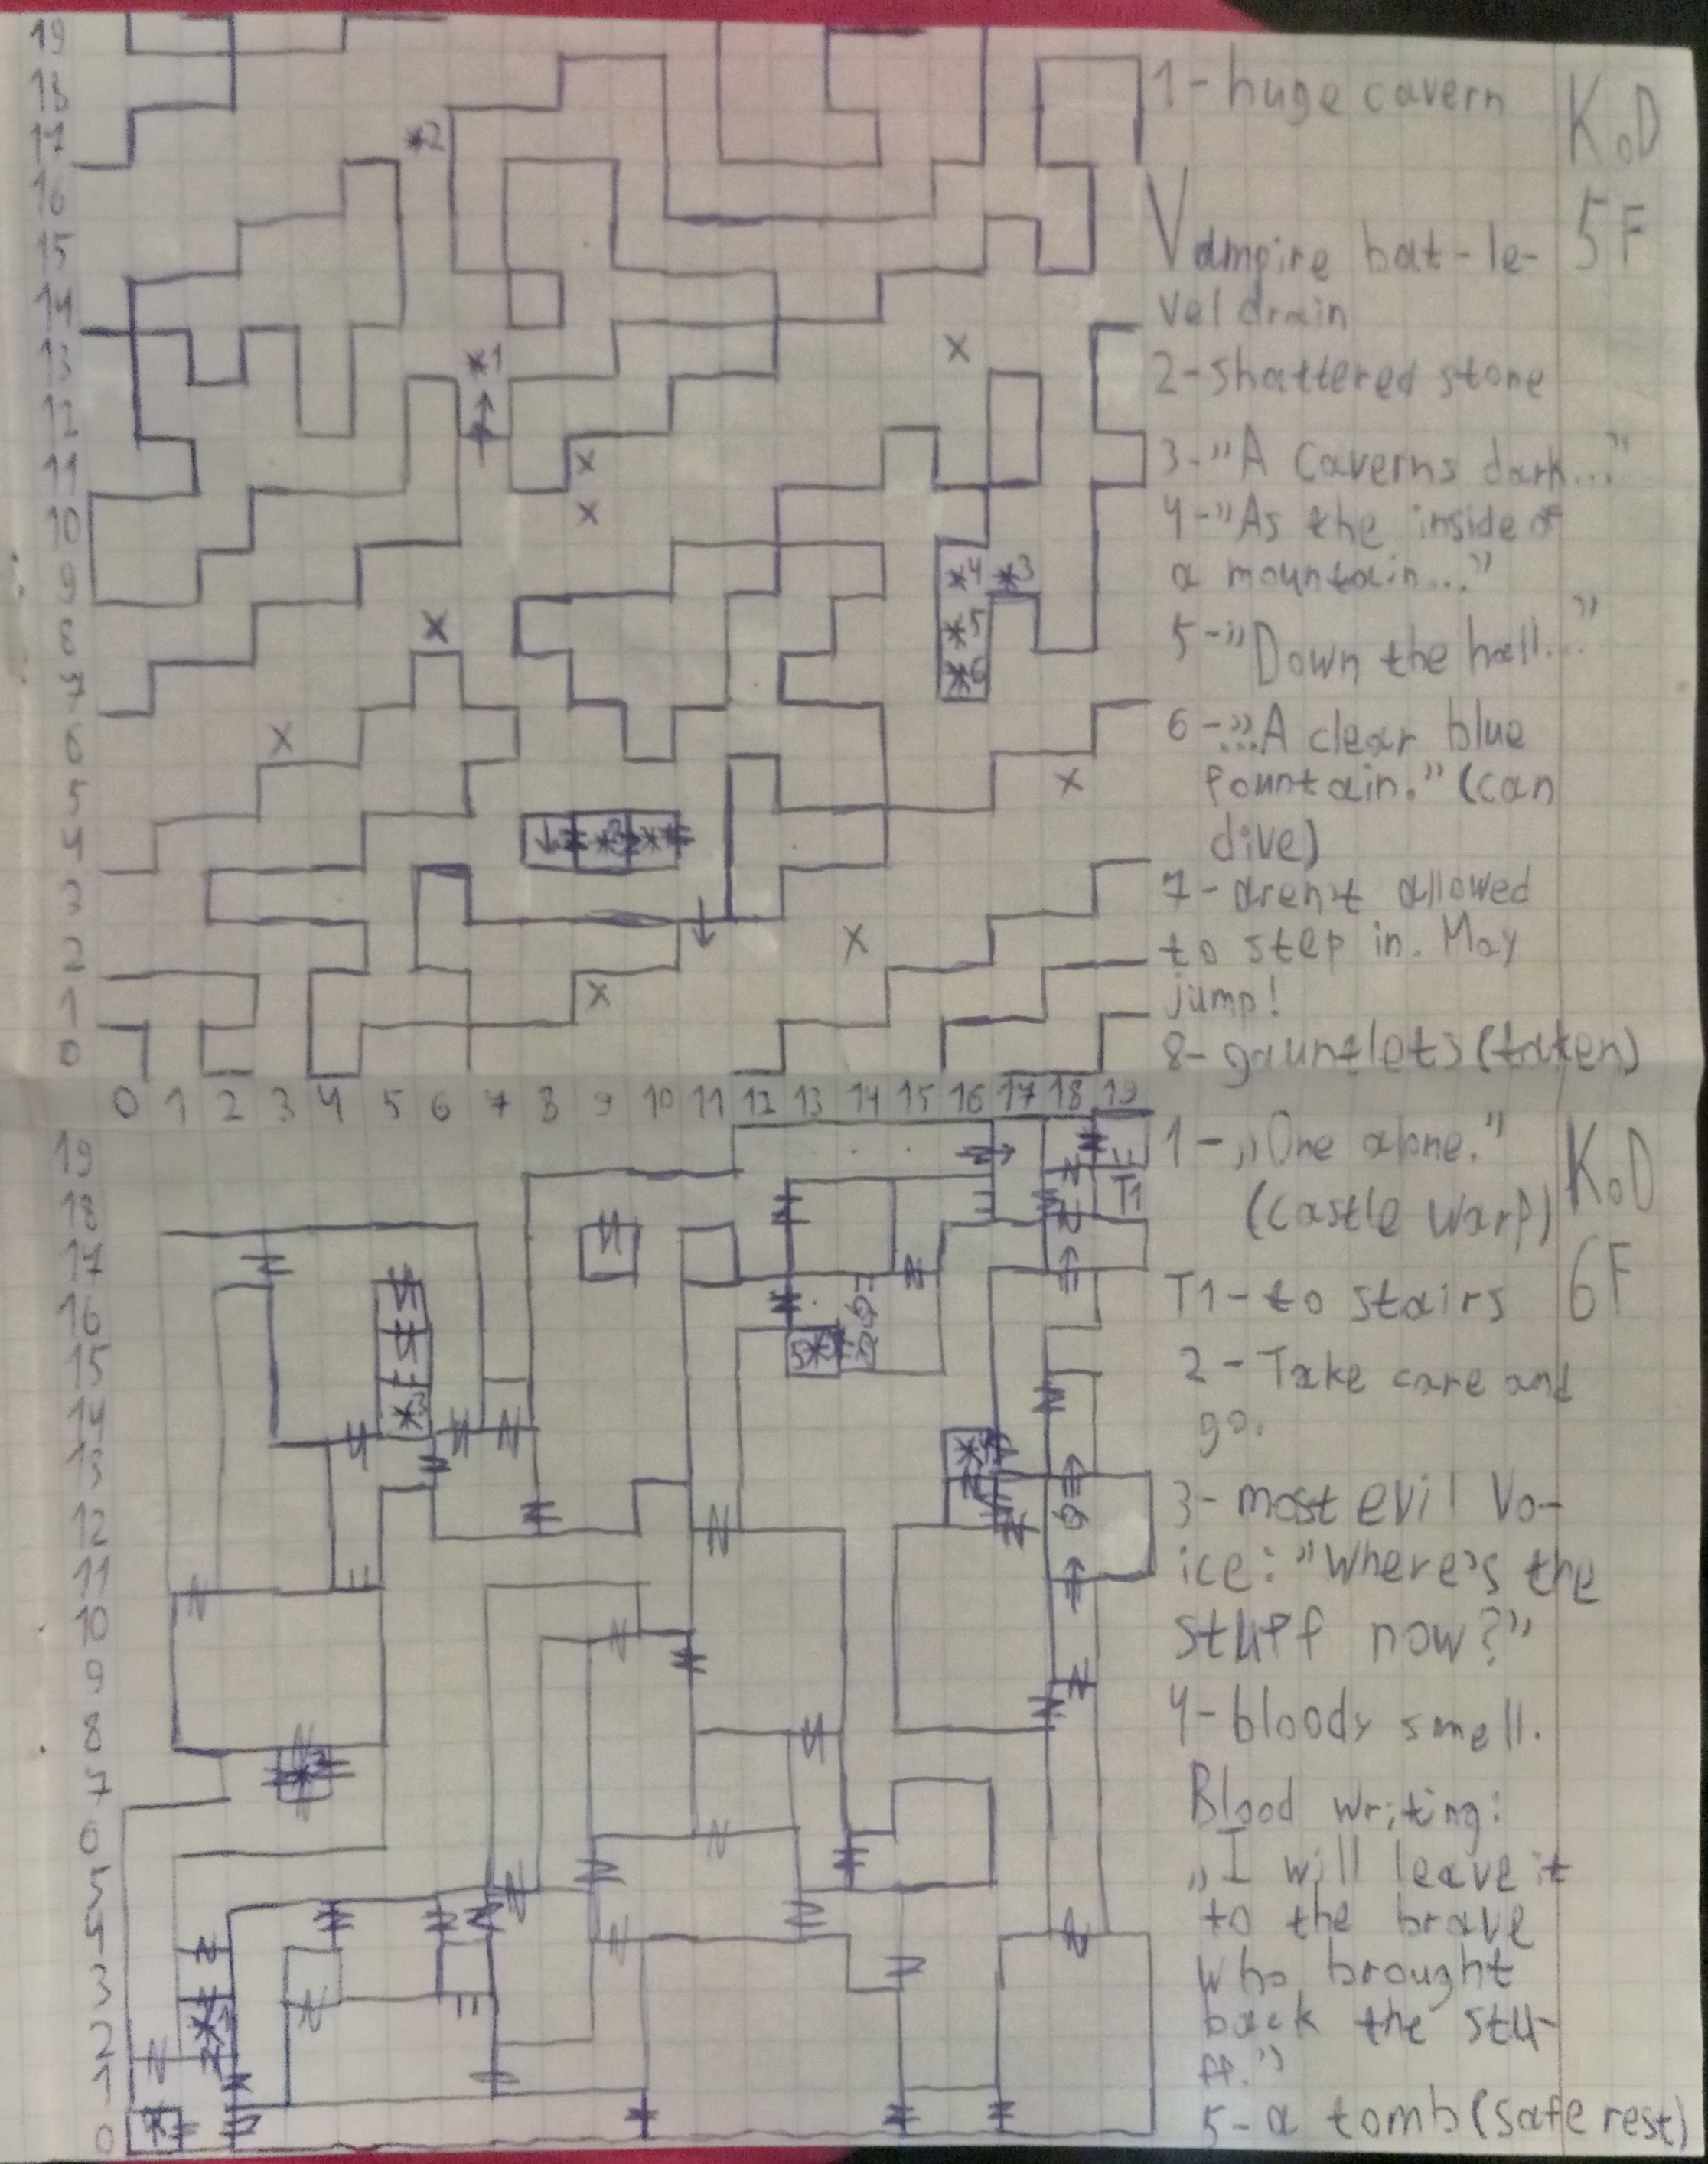 19
18
17
16
15
14
13
12
11
10
9
8
7
6
5
4
3
2
1
0
0 1 2 3 4 5 6 7 8 9 10 11 12 13 14 15 16 17 18 19
*2
*1
*4 *3
*5
*6
KoD
5F
1-huge cavern
Vampire bat-le-
vel drain
2-shattered stone
3-"A Caverns dark..."
4-"As the inside of
a mountain..."
5-"Down the hall..."
6-"...A clear blue
fountain." (can
dive)
7-aren't allowed
to step in. May
jump!
8-gauntlets(taken)
19
18
17
16
15
14
13
12
11
10
9
8
7
6
5
4
3
2
1
0
T1
KoD
6F
1-„One alone."
(castle warp)
T1-to stairs
2-Take care and
go.
3-most evil vo-
ice: "Where's the
stuff now?"
4-bloody smell.
Blood writing:
„I will leave it
to the brave
who brought
back the stu-
ff."
5-a tomb(safe rest)